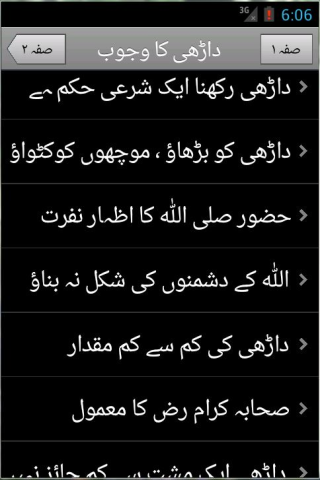 3G 6:06
صفہ ۲ داڑھی کا وجوب صفہ ۱
داڑھی رکھنا ایک شرعی حکم ہے
داڑھی کو بڑھاؤ ، موچھوں کوکٹواؤ
حضور صلی اللہ کا اظہار نفرت
اللہ کے دشمنوں کی شکل نہ بناؤ
داڑھی کی کم سے کم مقدار
صحابہ کرام رض کا معمول
داڑھی ایک مشت سے کم جائز نہیں